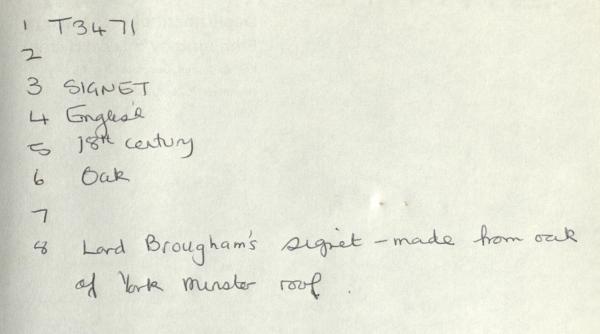 1 T3471
2
3 SIGNET
4 English
5 18th century
6 Oak
7
8 Lord Brougham's signet - made from oak
of York Minster roof.